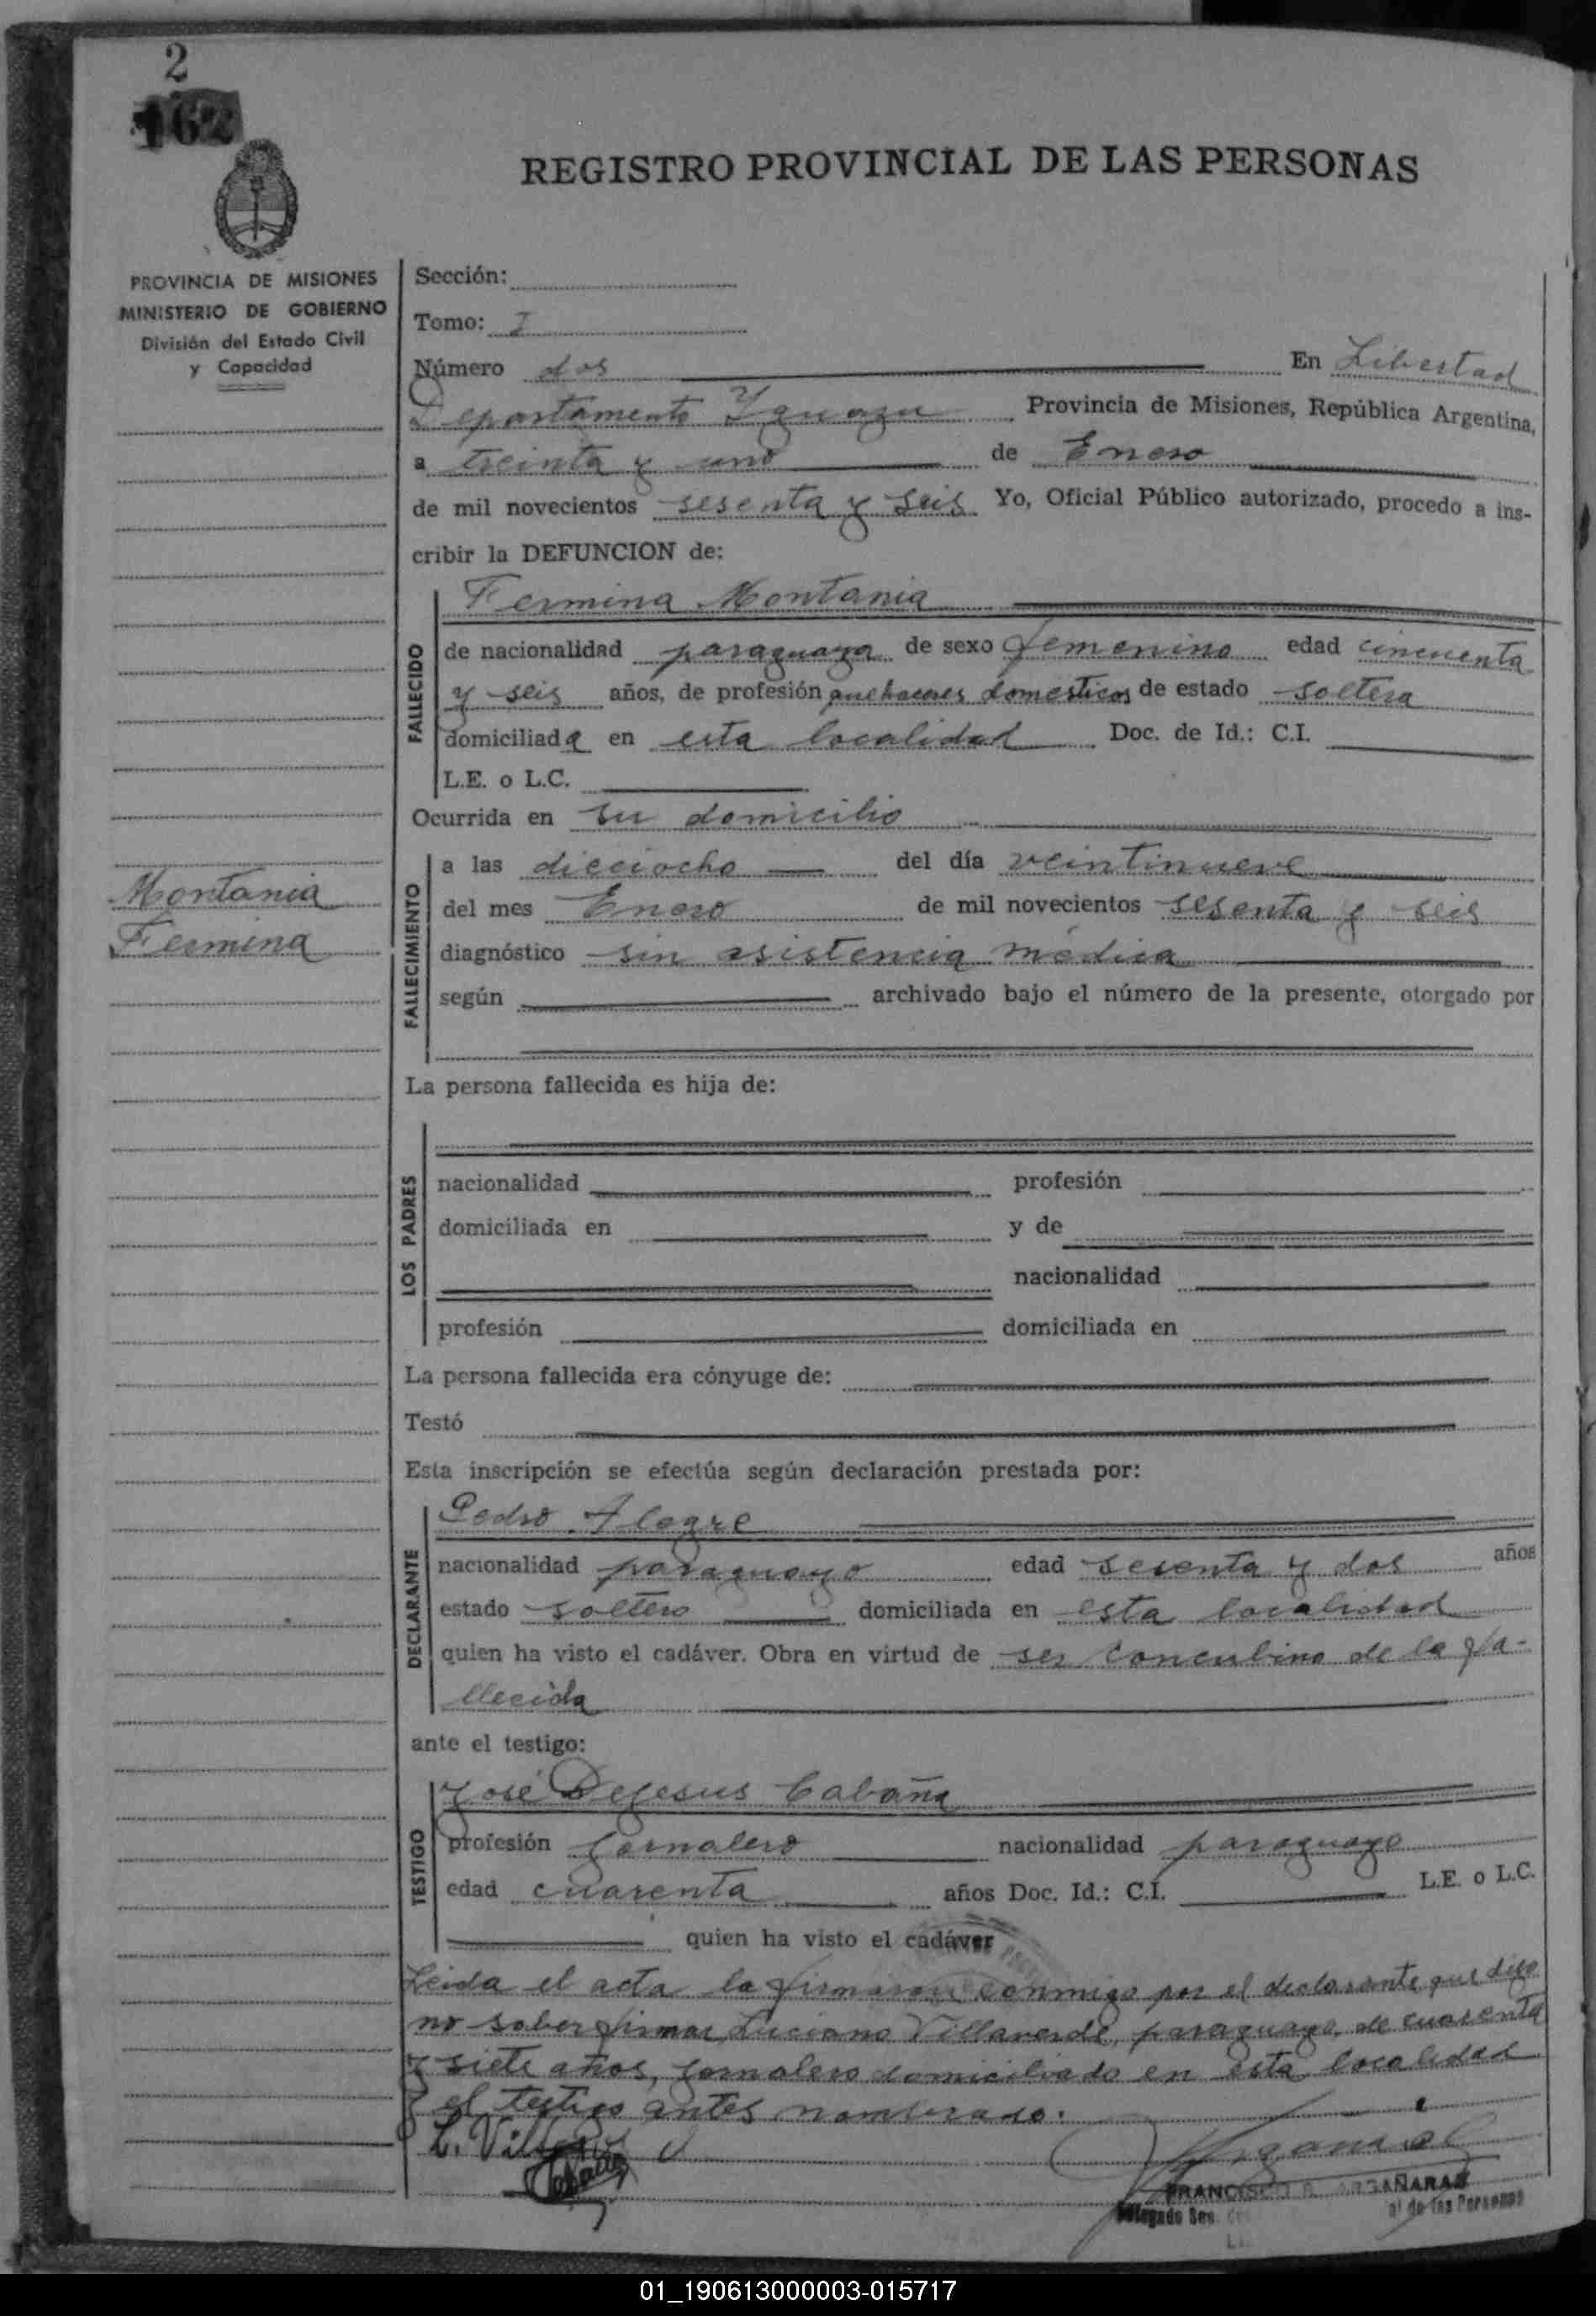 2
162
REGISTRO PROVINCIAL DE LAS PERSONAS
PROVINCIA DE MISIONES
MINISTERIO DE GOBIERNO
División del Estado Civil
y Capacidad
Sección:
Tomo: I
Número dos En Libertad
Departamento Iguazu Provincia de Misiones, República Argentina,
a treinta y uno de Enero
de mil novecientos sesenta y seis Yo, Oficial Público autorizado, procedo a ins-
cribir la DEFUNCION de:
Fermina Montania
FALLECIDO
de nacionalidad paraguaya de sexo femenino edad cincuenta
y seis años, de profesión quehaceres domesticos de estado soltera
domiciliada en esta localidad Doc. de Id.: C.I.
L.E. o L.C.
Ocurrida en su domicilio
Montania
Fermina
FALLECIMIENTO
a las dieciocho del día veintinueve
del mes Enero de mil novecientos sesenta y seis
diagnóstico sin asistencia médica
según archivado bajo el número de la presente, otorgado por
La persona fallecida es hija de:
LOS PADRES
nacionalidad profesión
domiciliada en y de
nacionalidad
profesión domiciliada en
La persona fallecida era cónyuge de:
Testó
Esta inscripción se efectúa según declaración prestada por:
Pedro Alegre
DECLARANTE
nacionalidad paraguayo edad sesenta y dos años
estado soltero domiciliada en esta localidad
quien ha visto el cadáver. Obra en virtud de ser concubino de la fa-
llecida
ante el testigo:
José Dejesus Cabaña
TESTIGO
profesión jornalero nacionalidad paraguayo
edad cuarenta años Doc. Id.: C.I. L.E. o L.C.
quien ha visto el cadáver
Leida el acta la firmaron conmigo por el declarante que dijo
no saber firmar Luciano Villaverde, paraguayo, de cuarenta
y siete años, jornalero domiciliado en esta localidad
y el testigo antes nombrado.
FRANCISCO ARGAÑARAZ
Delegado al de las Personas
01_190613000003-015717